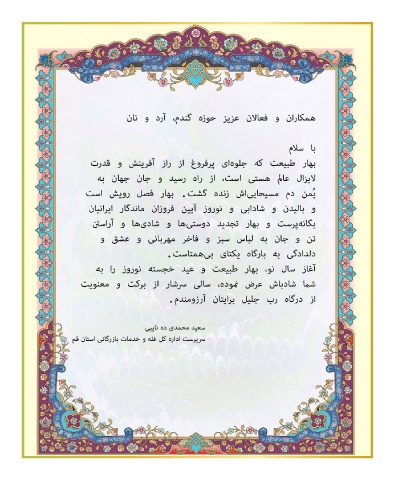 همکاران و فعالان عزیز حوزه گندم، آرد و نان
با سلام
بهار طبیعت که جلوه‌ای پرفروغ از راز آفرینش و قدرت
لایزال عالم هستی است، از راه رسید و جان جهان به
یُمن دم مسیحایی‌اش زنده گشت. بهار فصل رویش است
و بالیدن و شادابی و نوروز آیین فروزان ماندگار ایرانیان
یگانه‌پرست و بهار تجدید دوستی‌ها و شادی‌ها و آراستن
تن و جان به لباس سبز و فاخر مهربانی و عشق و
دلدادگی به بارگاه یکتای بی‌همتاست.
آغاز سال نو، بهار طبیعت و عید خجسته نوروز را به
شما شادباش عرض نموده، سالی سرشار از برکت و معنویت
از درگاه رب جلیل برایتان آرزومندم.
سعید محمدی ده نایبی
سرپرست اداره کل غله و خدمات بازرگانی استان قم